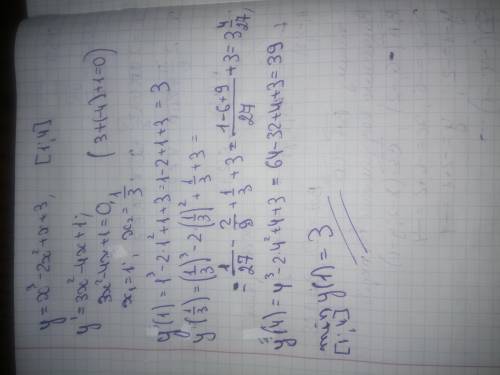 y = x³ - 2x² + x + 3, [1; 4]
y' = 3x² - 4x + 1;
3x² - 4x + 1 = 0, (3 + (-4) + 1 = 0)
x₁ = 1; x₂ = 1/3;
y(1) = 1³ - 2·1² + 1 + 3 = 1 - 2 + 1 + 3 = 3
y(1/3) = (1/3)³ - 2(1/3)² + 1/3 + 3 =
= 1/27 - 2/9 + 1/3 + 3 = (1 - 6 + 9)/27 + 3 = 3 4/27,
y(4) = 4³ - 2·4² + 4 + 3 = 64 - 32 + 4 + 3 = 39
min y(1) = 3
[1; 4]